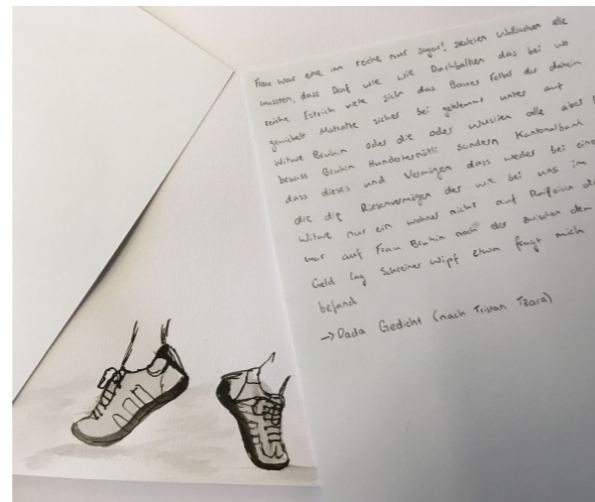 Frau war eine im reiche nur sogar! seltsen wussten alle
mussten, dass Dorf wie wie Dachbalken das bei wo
reiche Estrich viele sich das Bauer Felber der darein
Matratze sicher bei geklemmt unter auf
Witwe Bruhin oder die oder wussten alle aber
besass Bruhin Hunderternötli sondern Kantonalbank
dass dieses und Vermögen dass weder bei eine
die die Riesenvermögen der wie bei uns im
Witwe nur ein wohnt nicht auf Raiffeisen
war auf Frau Bruhin noch der zwischen dem
Geld lag Schreiner Wipf etwa fragt mich
befand
→ Dada Gedicht (nach Tristan Tzara)